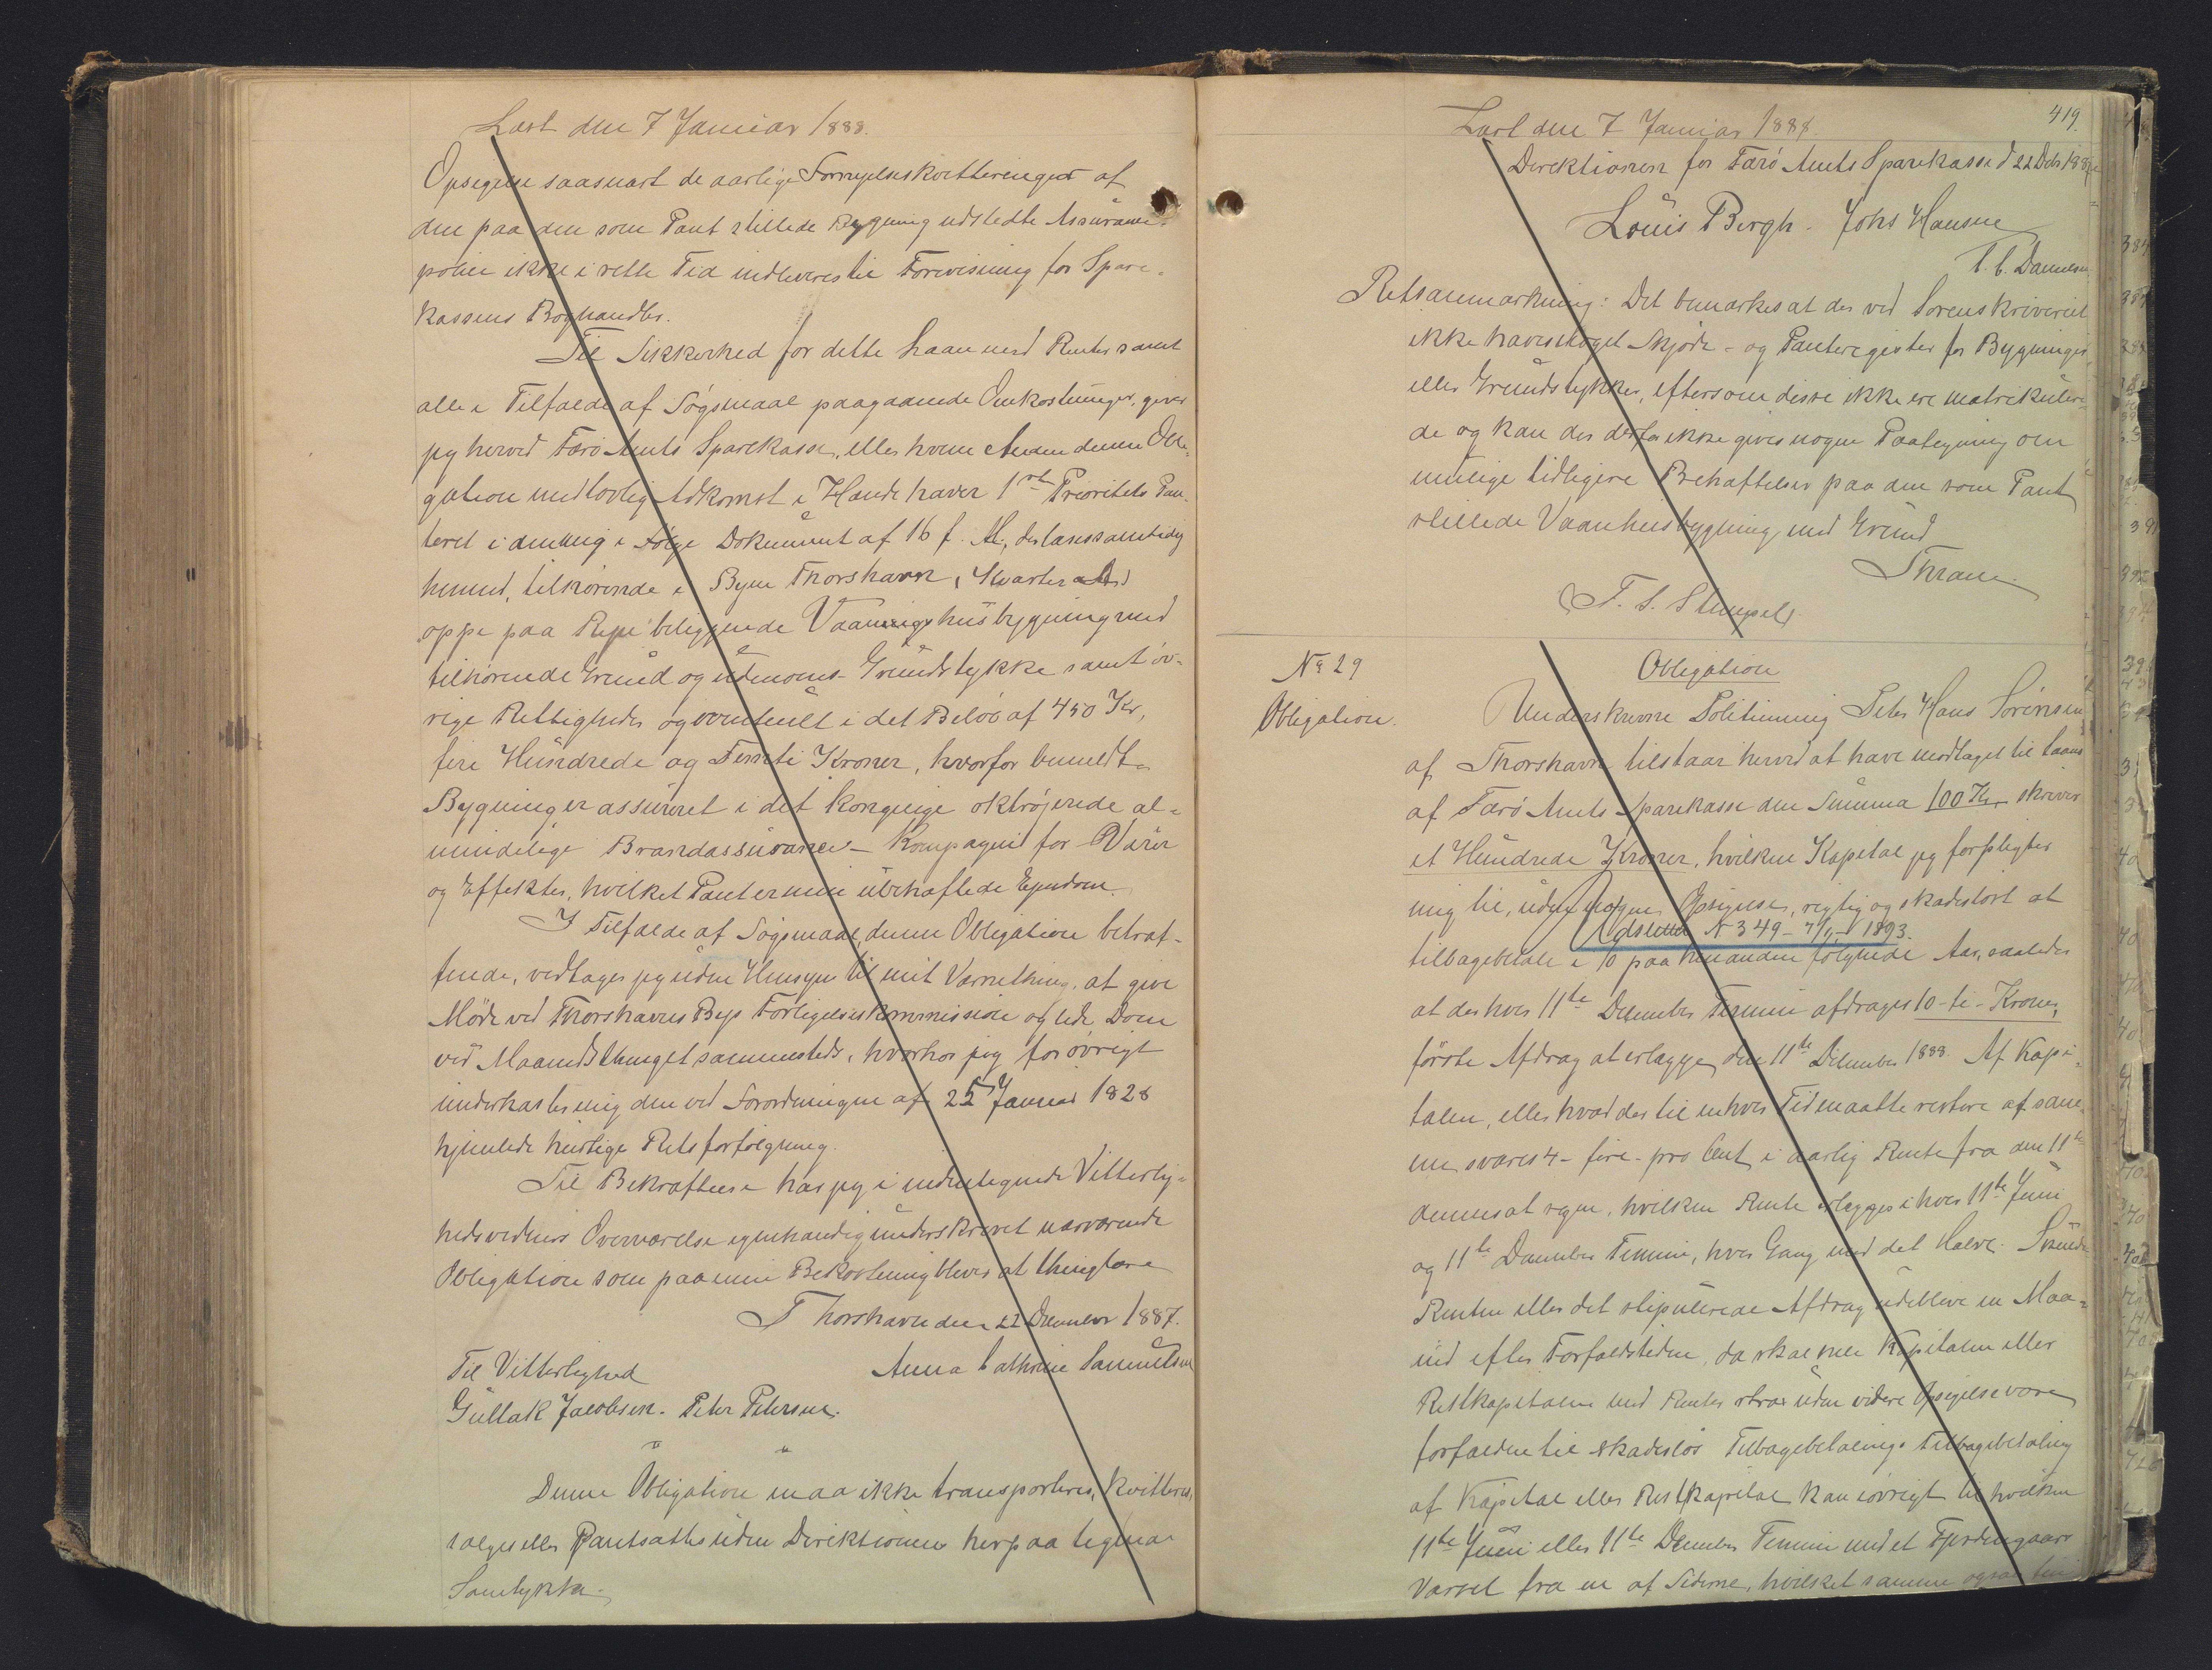 Læst den 7 Januar 1888.
Opsigelse saasnart de aarlige Fornyelseskvitteringer af
den paa den som Pant stillede Bygning udstedte Assurance-
police ikke i rette Tid indleveres til Forevisning for Spare-
kassens Boghandler.
Til Sikkerhed for dette Laan med Renter samt
alle i Tilfælde af Søgsmaal paagaaende Omkostninger, giver
jeg herved Færø Amts Sparekasse, eller hvem der denne Obli-
gation med lovlig Adkomst i Hænde haver 1ste Prioritets Pan-
teret i den mig i Følge Dokument af 16 f. M., der læses samtidig
hermed, tilhørende i Byen Thorshavn, Kvarter
oppe paa Reyn beliggende Vaaningshusbygning med
tilhørende Grund og udenoms Grundstykke samt øv-
rige Rettigheder og eventuelt i det Beløb af 450 Kr,
fire Hundrede og Femti Kroner, hvorfor bemeldte
Bygning er assureret i det kongelige oktrojerede al-
mindelige Brandassurance-Kompagni for Varer
og Effekter, hvilket Pant er min ubehæftede Ejendom.
I Tilfælde af Søgsmaal, denne Obligation betræf-
fende, vedtager jeg uden Hensyn til mit Værnething, at give
Møde ved Thorshavns Byes Forligelseskommission og lide Dom
ved Maanedsthinget sammesteds, hvorhos jeg for øvrigt
underkaster mig den ved Forordningen af 25 Januar 1828
hjemlede hurtige Retsforfølgning.
Til Bekræftelse har jeg i undertegnede Vitterlig-
hedsvidners Overværelse egenhændig underskrevet nærværende
Obligation som paa min Bekostning bliver at thinglæse
Thorshavn den 22 December 1887.
Til Vitterlighed Anna Cathrine Samuelsen
Gullak Jacobsen. Peter Petersen.
Denne Obligation maa ikke transporteres, kvitteres,
sælges eller Pantsættes uden Direktionens herpaa tegnede
Samtykke.
419.
Læst den 7 Januar 1888.
Direktionen for Færø Amts Sparekasse d 22 Dcbr 1887
Louis Bergh. Johs Hansen
Retsanmærkning: Det bemærkes at der ved Sorenskriveriet
ikke haves noget Skjøde- og Panteregister for Bygninger
eller Grundstykker, eftersom disse ikke ere matrikulere-
de og kan der derfor ikke gives nogen Paategning om
mulige tidligere Behæftelser paa den som Pant
stillede Vaanhusbygning med Grund
Thrane.
(T. S. Stempel)
No 29
Obligation.
Obligation
Underskrevne Politimung Peter Hans Sørensen
af Thorshavn tilstaar herved at have modtaget til Laans
af Færø Amts Sparekasse den Summa 100 Kr, skriver
et Hundrede Kroner, hvilken Kapital jeg forpligter
mig til, uden nogen Opsigelse, rigtig og skadesløst at
Udslettet N 349 - 7/11 - 1893.
tilbagebetale i 10 paa hinanden følgende Aar, saaledes
at der hver 11te December Termin afdrages 10-ti-Kroner,
første Afdrag at erlægge den 11te December 1888. Af Kapi-
talen, eller hvad der til enhver Tid maatte restere af sam-
me svares 4-fire-pro Cent i aarlig Rente fra den 11te
dennes at regne, hvilken Rente erlægges i hver 11te Juni
og 11te December Termin, hver Gang med det Halve. Skulde
Renten eller det stipulerede Afdrag udeblive en Maa-
ned efter Forfaldstiden, da skal hele Kapitalen eller
Restkapitalen med Renter strax uden videre Opsigelse være
forfalden til skadesløs Tilbagebetaling. Tilbagebetaling
af Kapital eller Restkapital kan iøvrigt til hvilken
11te Juni eller 11te December Termin med et Fjerdingaars
Varsel fra en af Siderne, hvilket samme ogsaa